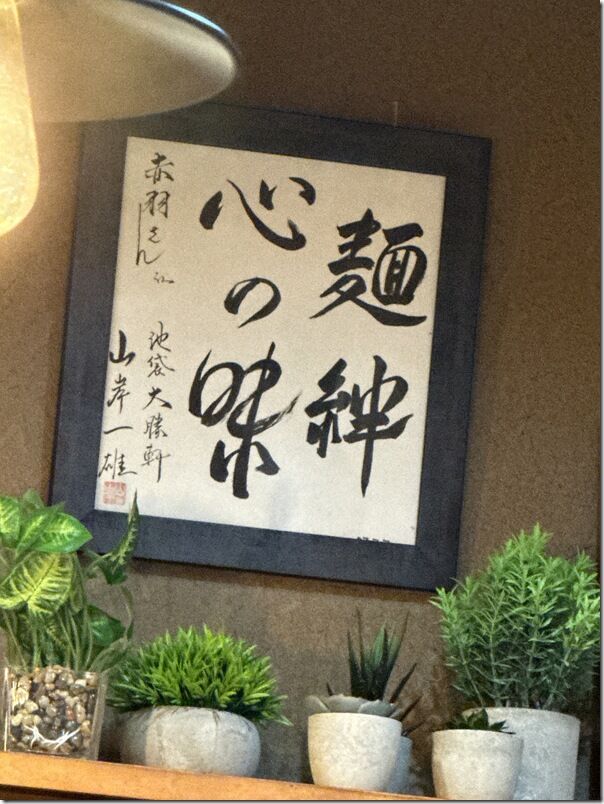 麺絆
心の味
赤羽さん江
池袋大勝軒
山岸一雄